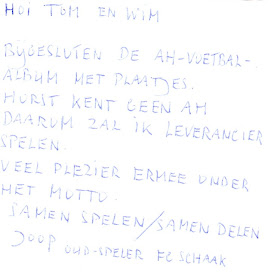 HOI TOM EN WIM
BIJGESLOTEN DE AH-VOETBAL-
ALBUM MET PLAATJES.
HORST KENT GEEN AH
DAAROM ZAL IK LEVERANCIER
SPELEN.
VEEL PLEZIER ERMEE ONDER
HET MOTTO.
SAMEN SPELEN/SAMEN DELEN
JOOP OUD-SPELER FC SCHAAK